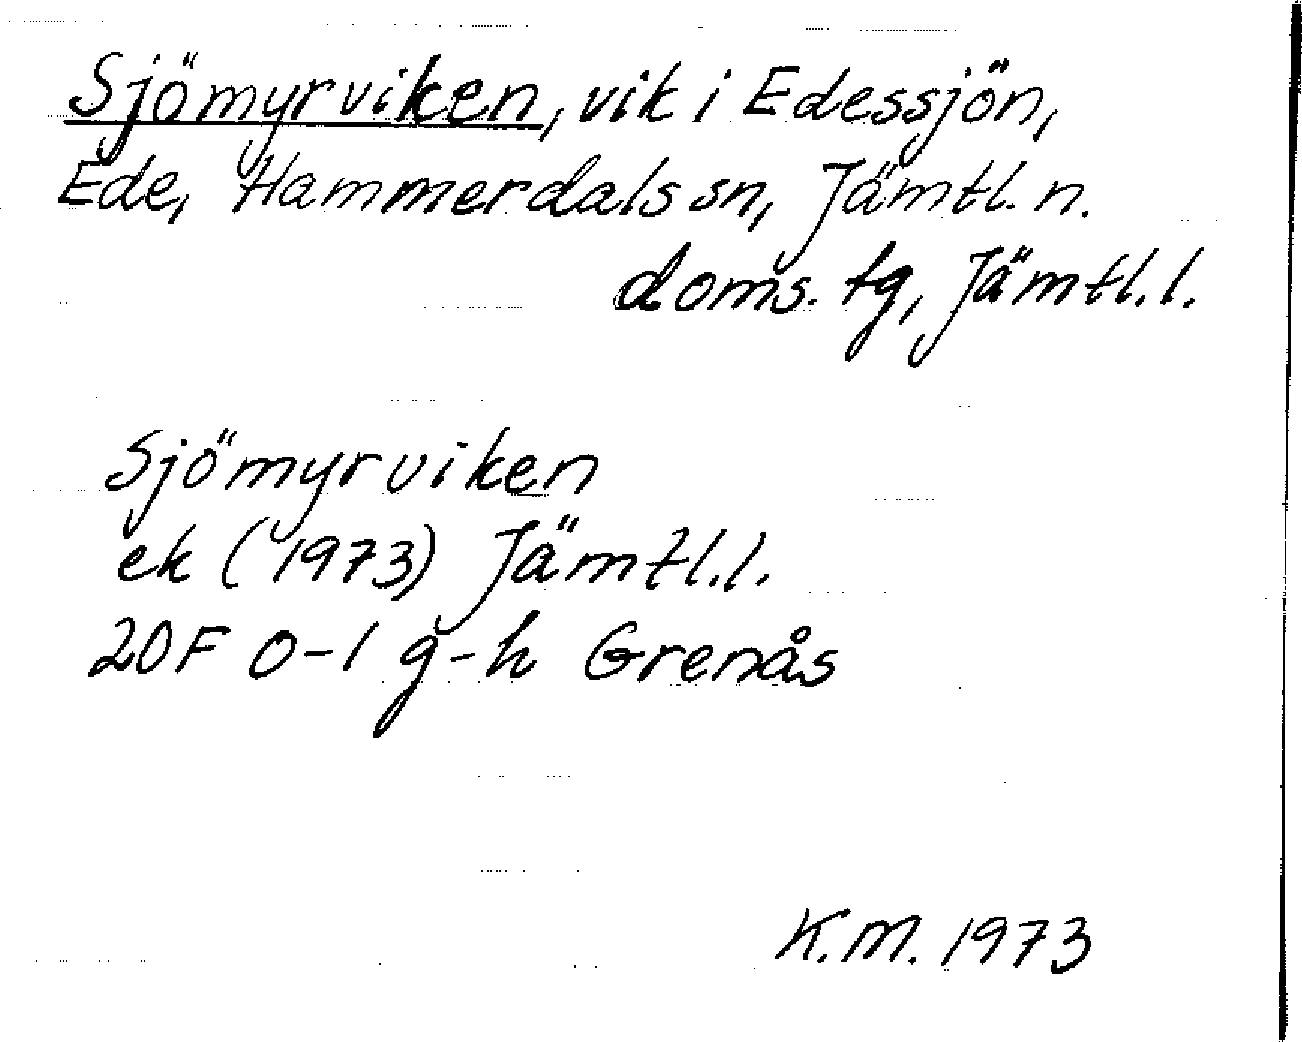 Sjömyrviken, vik i Edessjön,
Ede, Hammerdals sn, Jämtl. n.
doms. tg, Jämtl. l.
Sjömyrviken
ek (1973) Jämtl. l.
20F 0-1 g-h Grenås
K.M. 1973